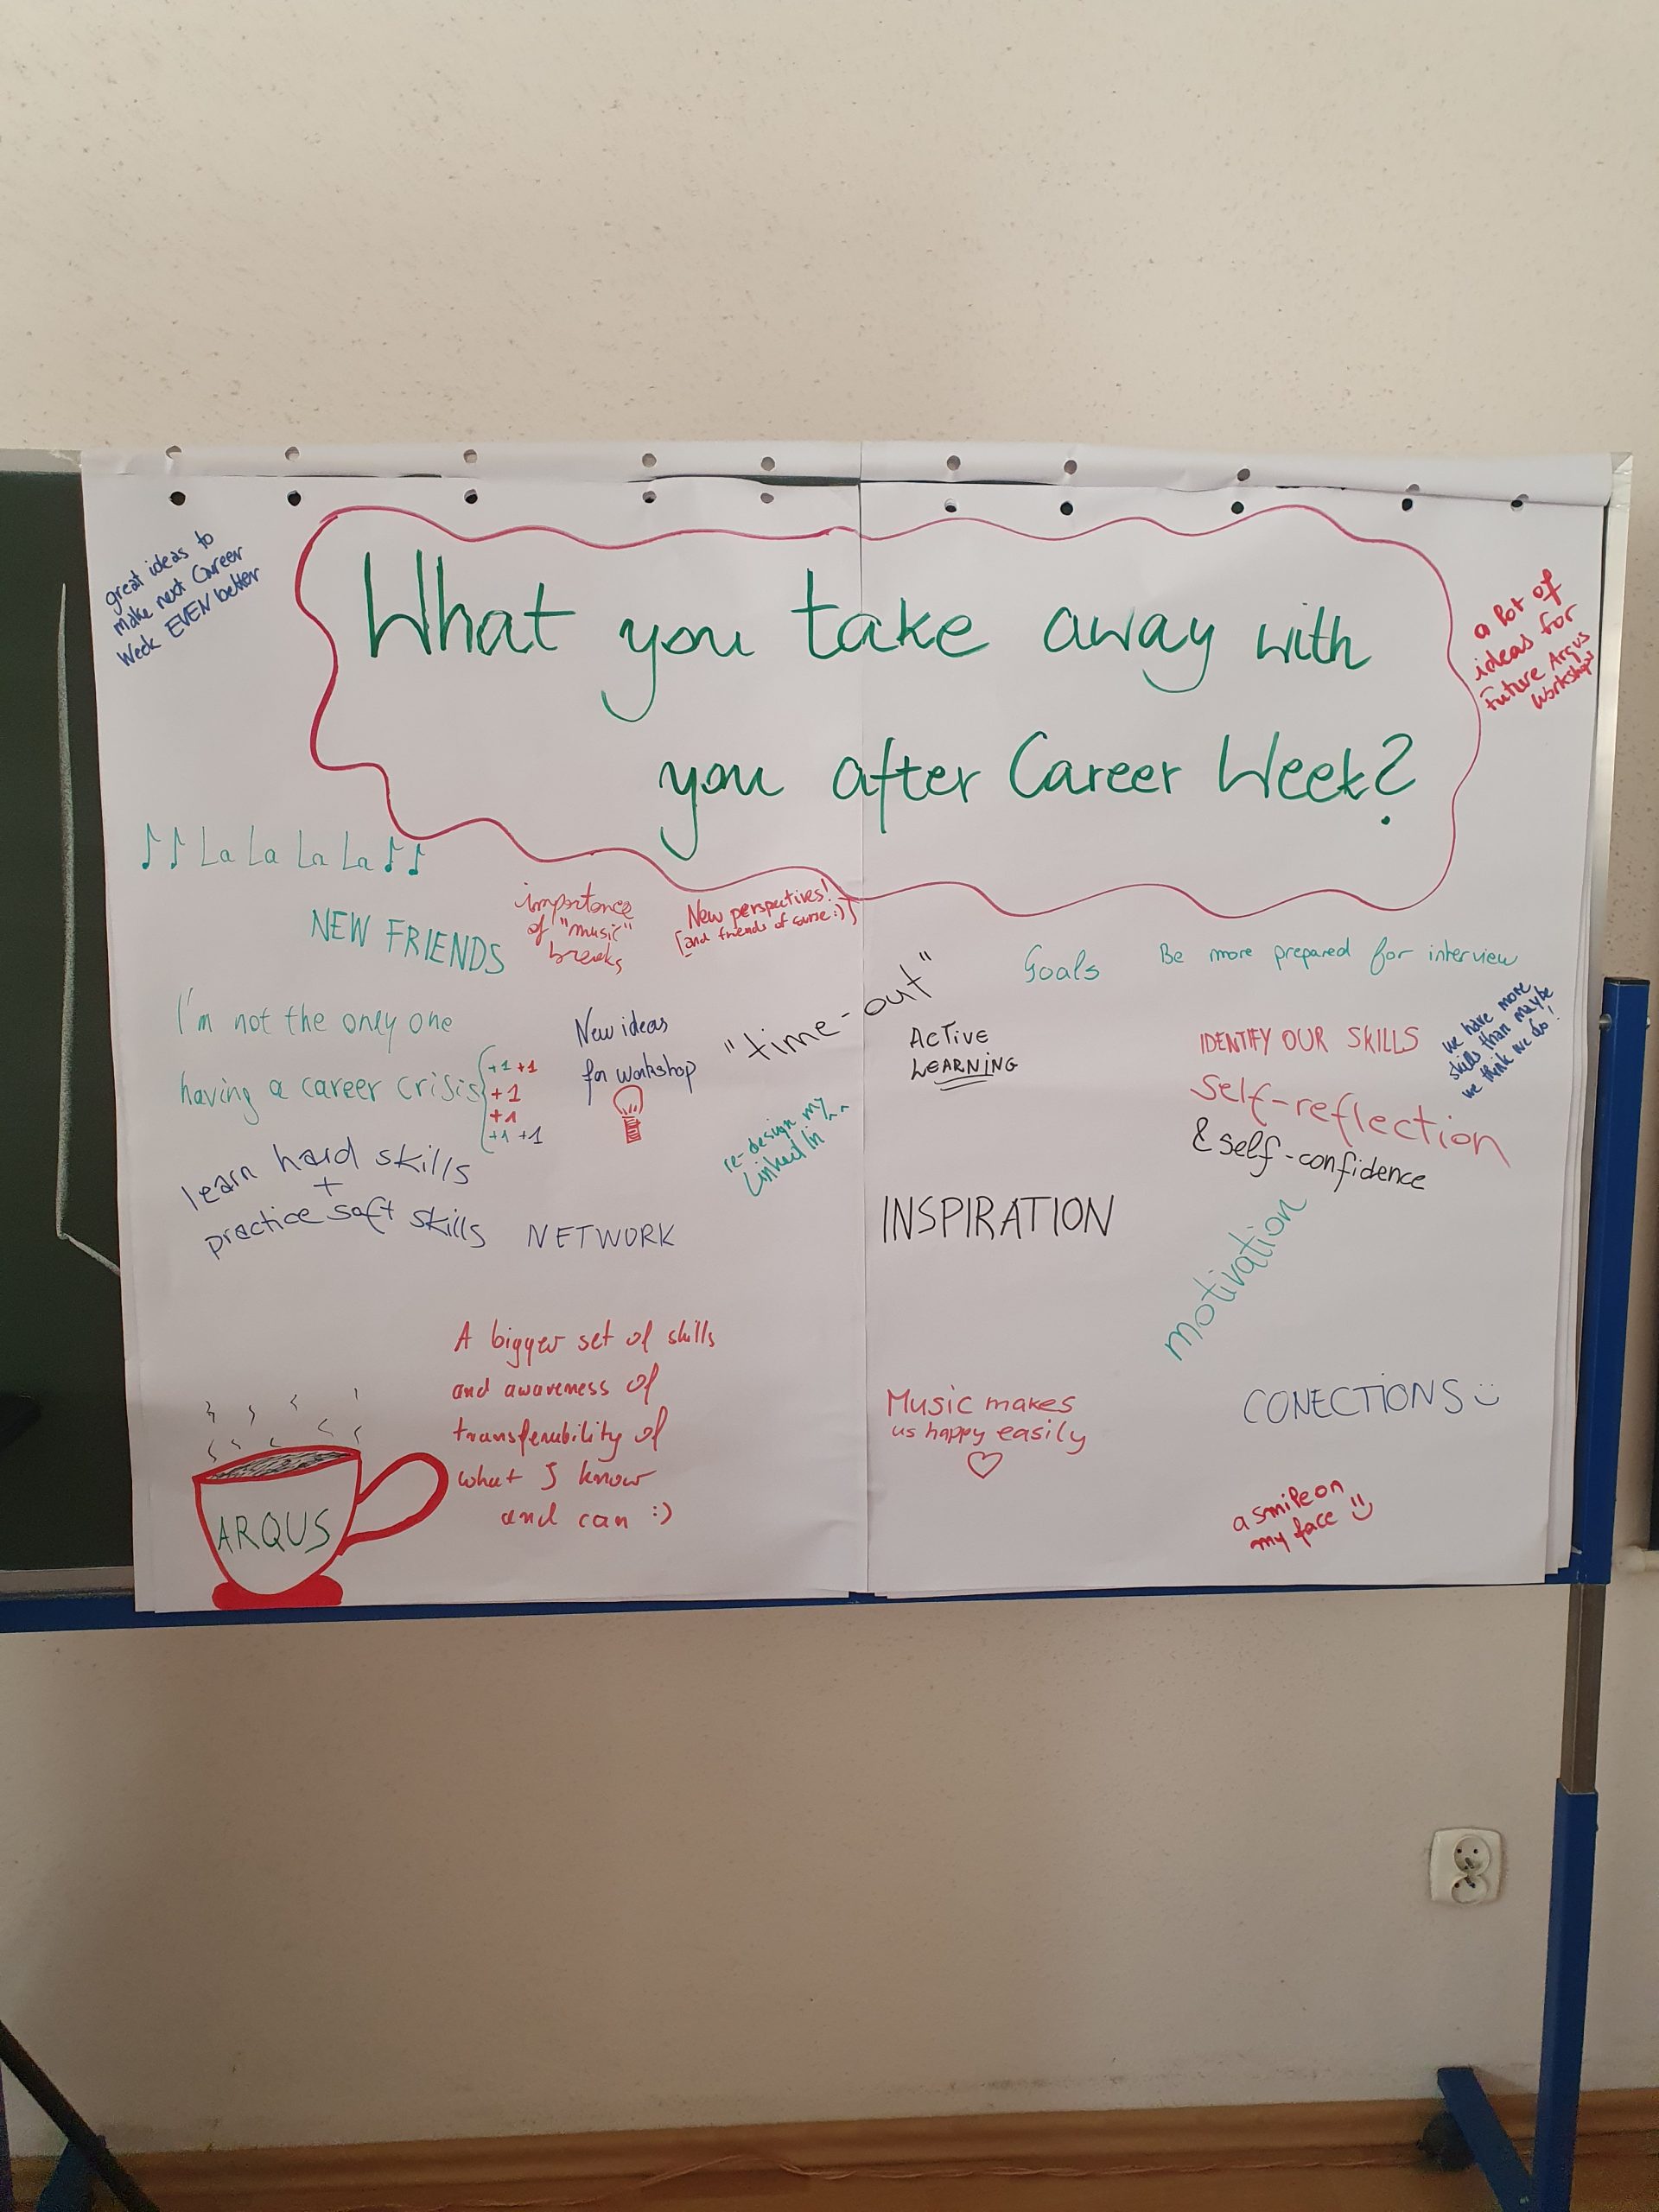 great ideas to
make next Career
Week EVEN better
What you take away with
you after Career Week?
a lot of
ideas for
future Arqus
workshops
La La La La
NEW FRIENDS
importance
of "music"
breaks
New perspectives!
[and friends of course :)]
"time-out"
Goals
Be more prepared for interview
I'm not the only one
having a career crisis
+1 +1
+1
+1
+1 +1
New ideas
for workshop
ACTIVE
LEARNING
IDENTIFY OUR SKILLS
we have more
skills than maybe
we think we do!
Self-reflection
& self-confidence
re-design my
Linked In ^^
learn hard skills
+
practice soft skills
NETWORK
INSPIRATION
motivation
A bigger set of skills
and awareness of
transferability of
what I know
and can :)
Music makes
us happy easily
CONECTIONS
a smile on
my face
ARQUS